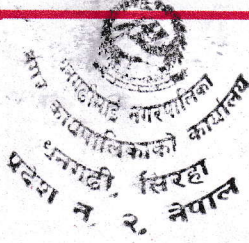 धनगढीमाई नगरपालिका
नगर कार्यपालिकाको कार्यालय
धनगढी, सिरहा
प्रदेश नं. २, नेपाल